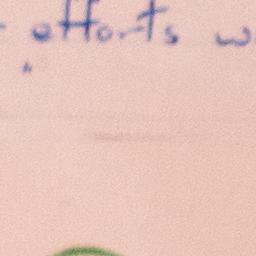 efforts
"